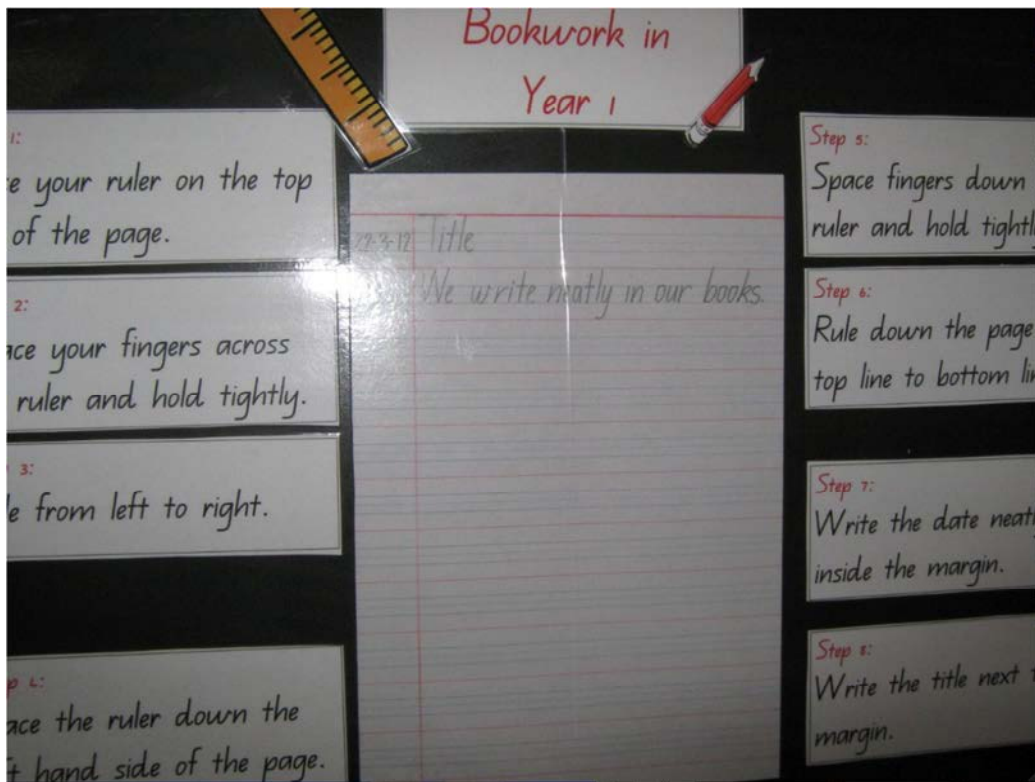 Bookwork in
Year 1
1:
your ruler on the top
of the page.
2:
your fingers across
ruler and hold tightly.
3:
from left to right.
4:
the ruler down the
hand side of the page.
22-3-12 Title
We write neatly in our books.
Step 5:
Space fingers down
ruler and hold
Step 6:
Rule down the page
top line to bottom
Step 7:
Write the date
inside the margin.
Step 8:
Write the title next
margin.